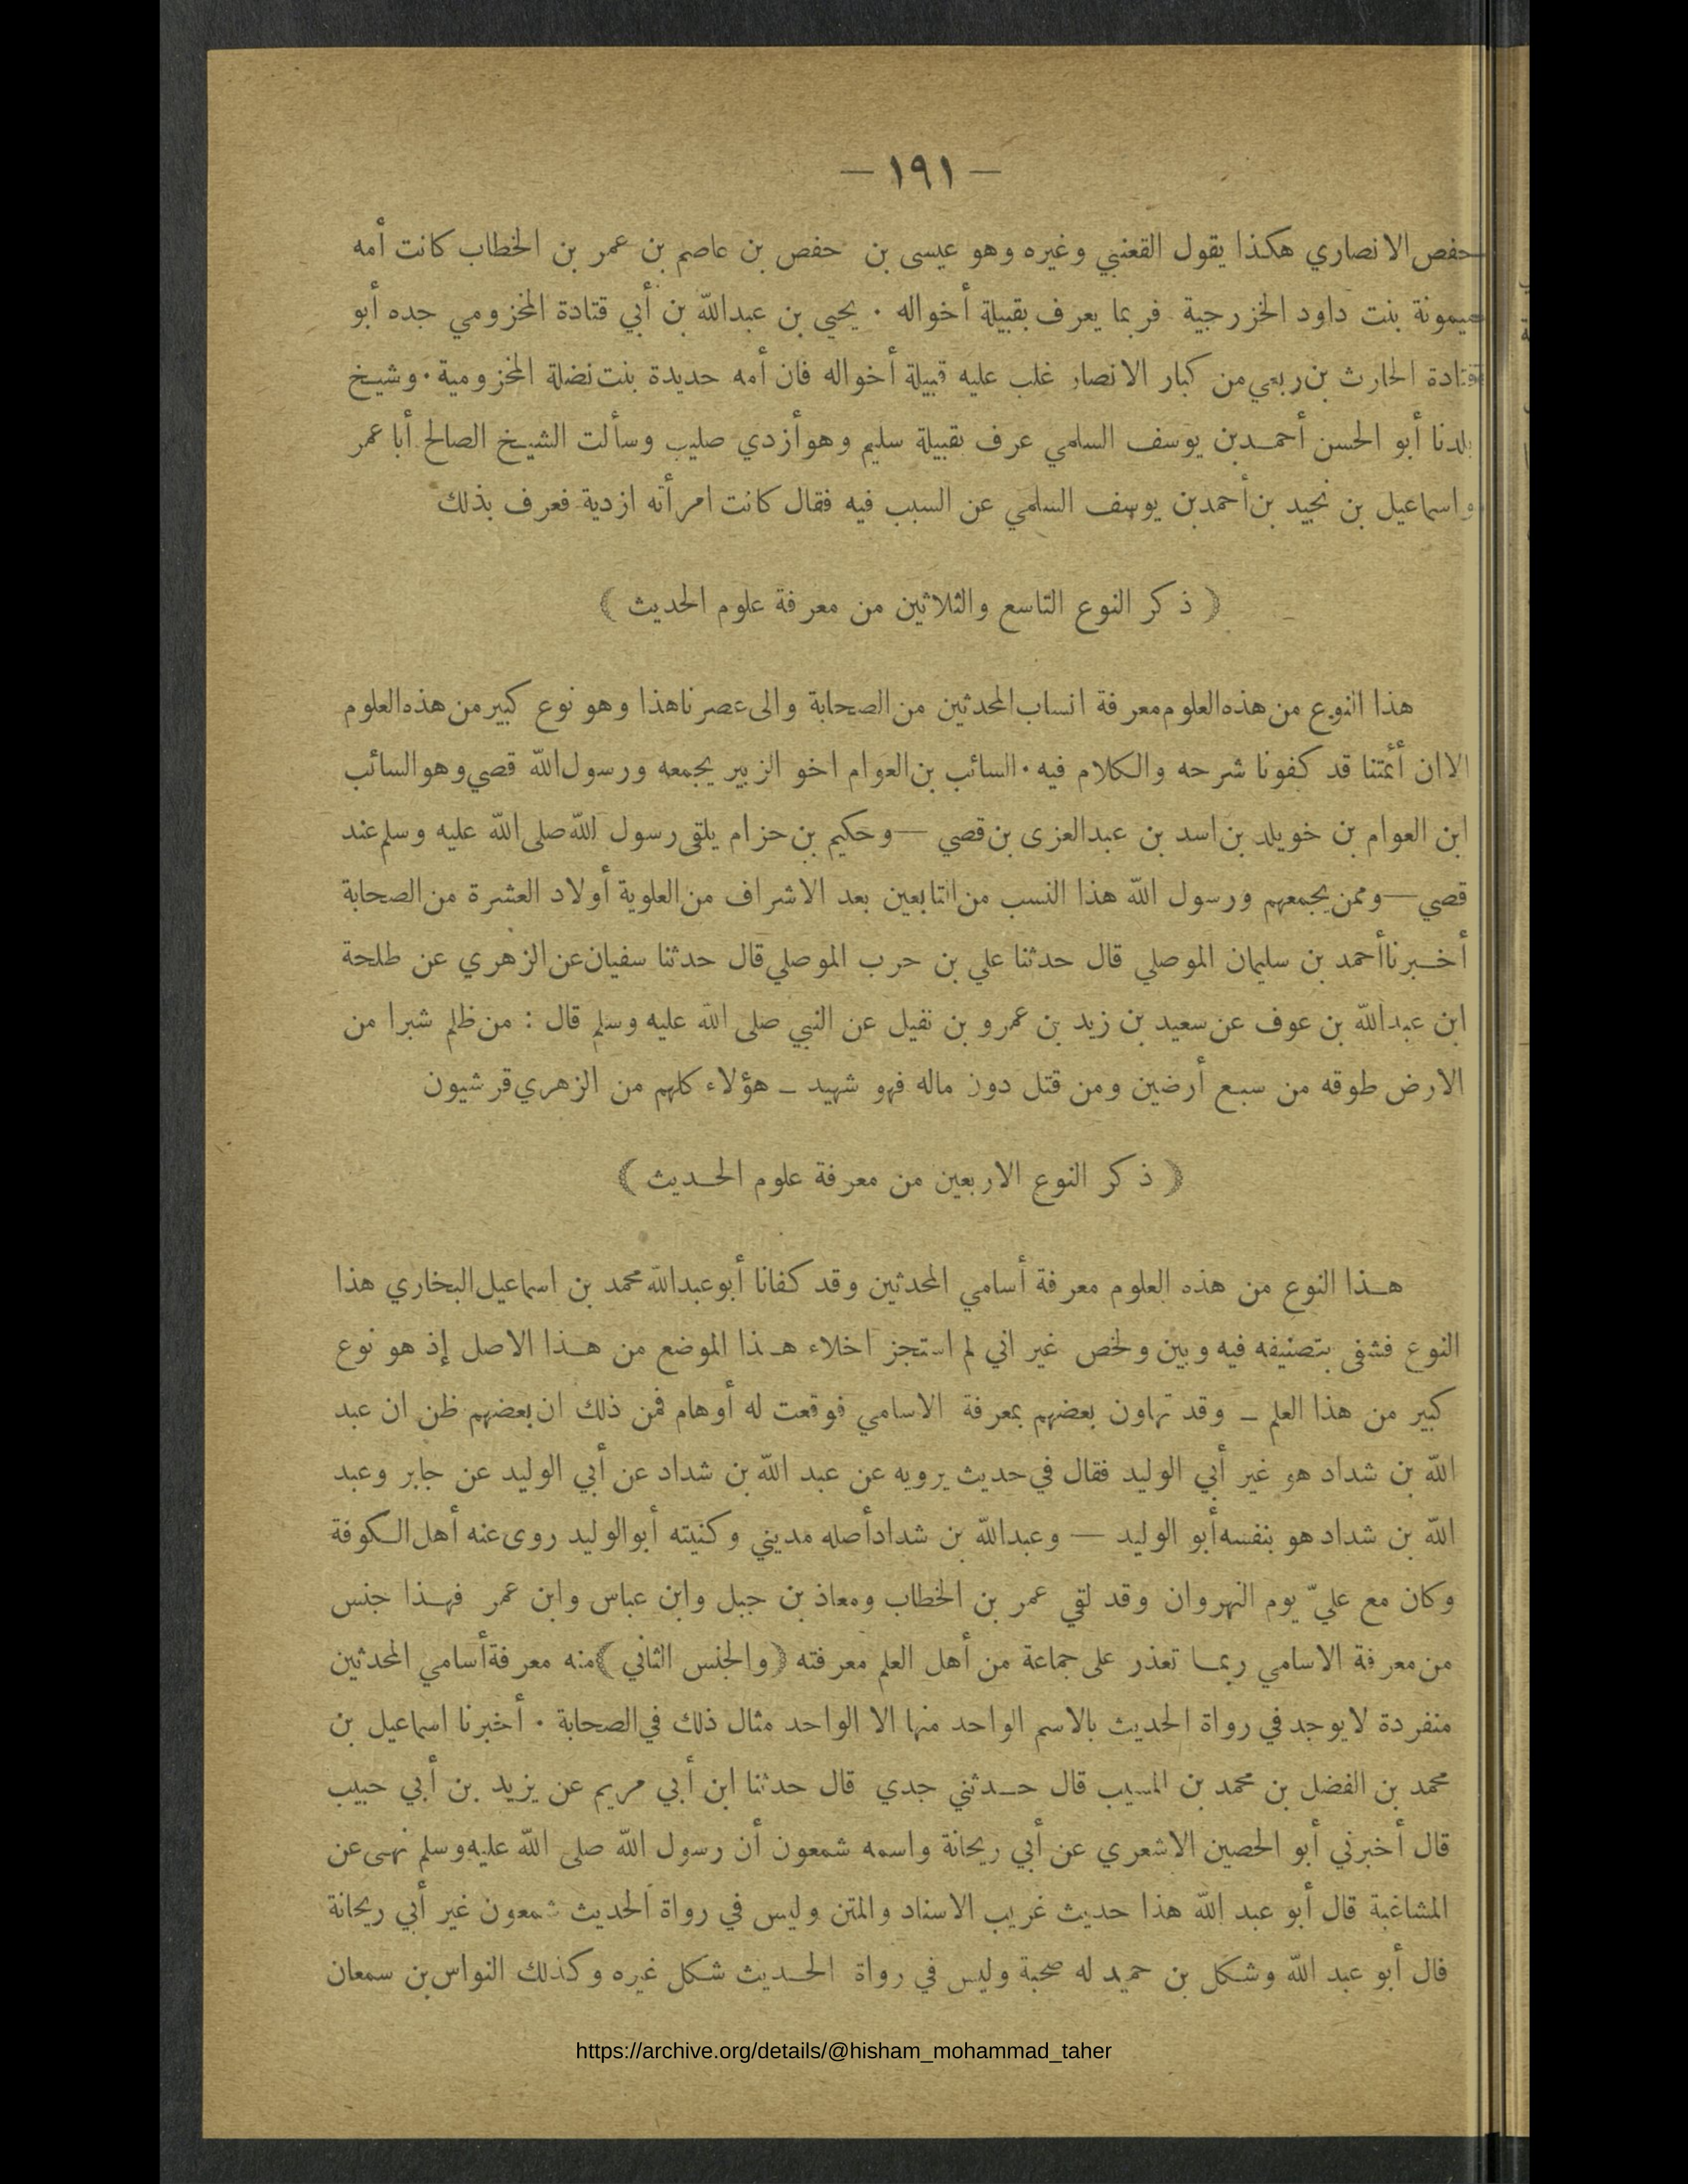 — ١٩١ —
حفص الانصاري هكذا يقول القعنبي وغيره وهو عيسى بن حفص بن عاصم بن عمر بن الخطاب كانت أمه
ميمونة بنت داود الخزرجية فربما يعرف بقبيلة أخواله ٠ يحيى بن عبدالله بن أبي قتادة المخزومي جده أبو
قتادة الحارث بن ربعي من كبار الانصار غلب عليه قبيلة أخواله فان أمه حديدة بنت نضلة المخزومية ٠ وشيخ
بلدنا أبو الحسن أحمد بن يوسف السلمي عرف بقبيلة سليم وهو أزدي صليب وسألت الشيخ الصالح أبا عمر
واسماعيل بن نجيد بن أحمد بن يوسف السلمي عن السبب فيه فقال كانت امرأته ازدية فعرف بذلك
﴿ ذكر النوع التاسع والثلاثين من معرفة علوم الحديث ﴾
هذا النوع من هذه العلوم معرفة انساب المحدثين من الصحابة والى عصرنا هذا وهو نوع كبير من هذه العلوم
الا ان أئمتنا قد كفونا شرحه والكلام فيه ٠ السائب بن العوام اخو الزبير يجمعه ورسول الله قصي وهو السائب
ابن العوام بن خويلد بن اسد بن عبد العزى بن قصي — وحكيم بن حزام يلتقى رسول الله صلى الله عليه وسلم عند
قصي — وممن يجمعهم ورسول الله هذا النسب من التابعين بعد الاشراف من العلوية أولاد العشرة من الصحابة
أخبرنا أحمد بن سليمان الموصلي قال حدثنا علي بن حرب الموصلي قال حدثنا سفيان عن الزهري عن طلحة
ابن عبدالله بن عوف عن سعيد بن زيد بن عمرو بن نفيل عن النبي صلى الله عليه وسلم قال : من ظلم شبرا من
الارض طوقه من سبع أرضين ومن قتل دون ماله فهو شهيد ـ هؤلاء كلهم من الزهري قرشيون
﴿ ذكر النوع الاربعين من معرفة علوم الحديث ﴾
هذا النوع من هذه العلوم معرفة أسامي المحدثين وقد كفانا أبو عبدالله محمد بن اسماعيل البخاري هذا
النوع فشفى بتصنيفه فيه وبين ولخص غير اني لم استجز اخلاء هذا الموضع من هذا الاصل إذ هو نوع
كبير من هذا العلم ـ وقد تهاون بعضهم بمعرفة الاسامي فوقعت له أوهام فمن ذلك ان بعضهم ظن ان عبد
الله بن شداد هو غير أبي الوليد فقال في حديث يرويه عن عبد الله بن شداد عن أبي الوليد عن جابر وعبد
الله بن شداد هو بنفسه أبو الوليد — وعبدالله بن شداد أصله مديني وكنيته أبو الوليد روى عنه أهل الكوفة
وكان مع عليّ يوم النهروان وقد لقي عمر بن الخطاب ومعاذ بن جبل وابن عباس وابن عمر فهذا جنس
من معرفة الاسامي ربما تعذر على جماعة من أهل العلم معرفته ﴿والجنس الثاني﴾ منه معرفة أسامي المحدثين
منفردة لا يوجد في رواة الحديث بالاسم الواحد منها الا الواحد مثال ذلك في الصحابة ٠ أخبرنا اسماعيل بن
محمد بن الفضل بن محمد بن المسيب قال حدثني جدي قال حدثنا ابن أبي مريم عن يزيد بن أبي حبيب
قال أخبرني أبو الحصين الاشعري عن أبي ريحانة واسمه شمعون أن رسول الله صلى الله عليه وسلم نهى عن
المشاغبة قال أبو عبد الله هذا حديث غريب الاسناد والمتن وليس في رواة الحديث شمعون غير أبي ريحانة
قال أبو عبد الله وشكل بن حميد له صحبة وليس في رواة الحديث شكل غيره وكذلك النواس بن سمعان
https://archive.org/details/@hisham_mohammad_taher